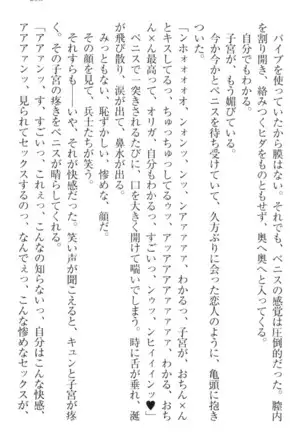 バイブを使っていたから膜はない。それでも、ペニスの感覚は圧倒的だった。膣内
を割り開き、絡みつくヒダをものともせず、奥へ奥へと入ってくる。
自分でもわかる。
子宮が、もう媚びている。
今か今かとペニスを待ち受けていて、久方ぶりに会った恋人のように、亀頭に抱き
ついた。
「ンホォオオオオ、ンォンッ、ンッ、ンアアアァァァ、わかるっ、子宮が、おちん×ん
とキスしてるっ、ちゅっちゅってしてるゥッ、アッアアアアァァァァ、わかる、おち
ん×ん最高って、オリガ、自分もわかるっ、すごいっ、ンゥッ、ンヒィイイィンッ♥」
ペニスで一突きされるたびに、口を大きく開けて喘いでしまう。時に舌が垂れ、涎
が飛び散り、涙が出て、鼻水が出る。
みっともない、恥ずかしい、惨めな、顔だ。
その顔を見て、兵士たちが笑う。
それすらも――いや、それが快感だった。笑い声が聞こえると、キュンと子宮が疼
く。その子宮の疼きをペニスが晴らしてくれる。
「アアァンッ、す、すごいっ、これぇっ、こんなの知らないっ、自分はこんな快感、
アアアァンッ、見られてセックスするのっ、なんでぇっ、こんな惨めなセックスが、